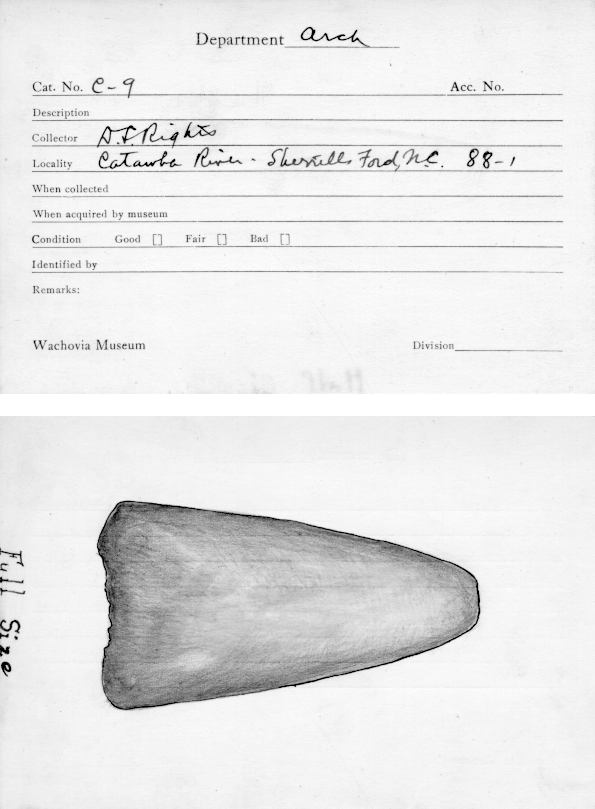 Department Arch
Cat. No. C-9 Acc. No.
Description
Collector D.L. Rights
Locality Catawba River - Sherrills Ford, N.C. 88-1
When collected
When acquired by museum
Condition Good [] Fair [] Bad []
Identified by
Remarks:
Wachovia Museum Division
Full Size